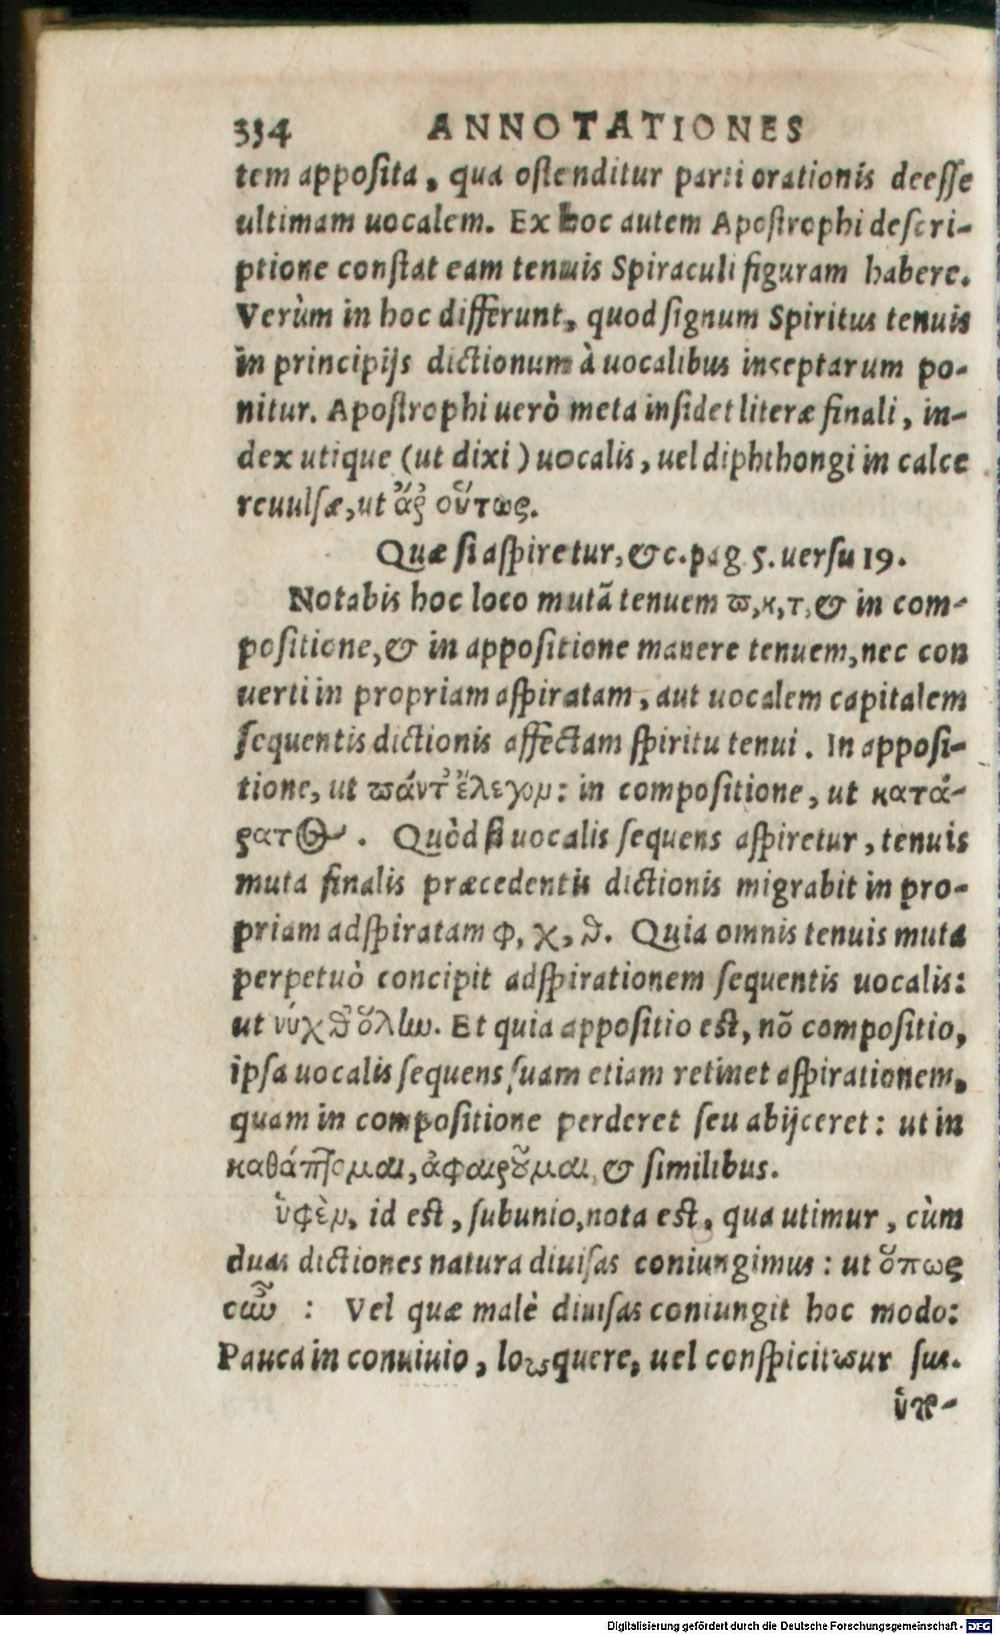 334 ANNOTATIONES
tem apposita, qua ostenditur parti orationis deesse
ultimam uocalem. Ex hoc autem Apostrophi descri-
ptione constat eam tenuis Spiraculi figuram habere.
Verùm in hoc differunt, quod signum Spiritus tenuis
in principijs dictionum à uocalibus inceptarum po-
nitur. Apostrophi uerò meta insidet literæ finali, in-
dex utique (ut dixi) uocalis, uel diphthongi in calce
reuulsæ, ut οὕτως.
Quæ si aspiretur, &c. pag 5. uersu 19.
Notabis hoc loco mutā tenuem ϖ, κ, τ, & in com-
positione, & in appositione manere tenuem, nec con
uerti in propriam aspiratam, aut uocalem capitalem
sequentis dictionis affectam spiritu tenui. In apposi-
tione, ut ϖάντ᾽ ἔλεγον: in compositione, ut κατά-
ρατος. Quòd si uocalis sequens aspiretur, tenuis
muta finalis præcedentis dictionis migrabit in pro-
priam adspiratam φ, χ, ϑ. Quia omnis tenuis muta
perpetuò concipit adspirationem sequentis uocalis:
ut νύχϑ᾽ ὅλην. Et quia appositio est, nō compositio,
ipsa uocalis sequens suam etiam retinet aspirationem,
quam in compositione perderet seu abijceret: ut in
καθάπτομαι, ἀφαιροῦμαι, & similibus.
ὑφὲν, id est, subunio, nota est, qua utimur, cùm
duas dictiones natura diuisas coniungimus: ut ὅπως
οὖν : Vel quæ malè diuisas coniungit hoc modo:
Pauca in conuiuio, lo quere, uel conspicit ur sus.
ὑπ-
Digitalisierung gefördert durch die Deutsche Forschungsgemeinschaft - DFG